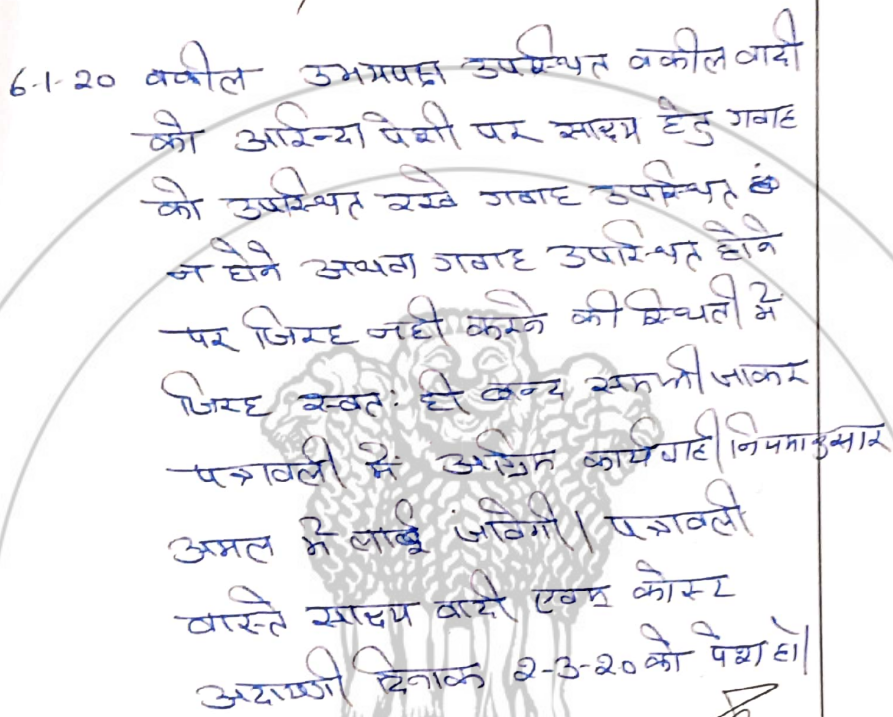 6-1-20 वकील उभयपक्ष उपस्थित वकील वादी
को आईन्दा पेशी पर साक्ष्य हेतु गवाह
को उपस्थित रखे गवाह उपस्थित
न होने अथवा गवाह उपस्थित होने
पर जिरह नही करने की स्थिती में
जिरह स्वत: ही बन्द समझी जाकर
पत्रावली में अग्रिम कार्यवाही नियमानुसार
अमल में लाई जावेगी। पत्रावली
वास्ते साक्ष्य वादी एवम कोस्ट
अदायगी दिनाक 2-3-20 को पेश हो।